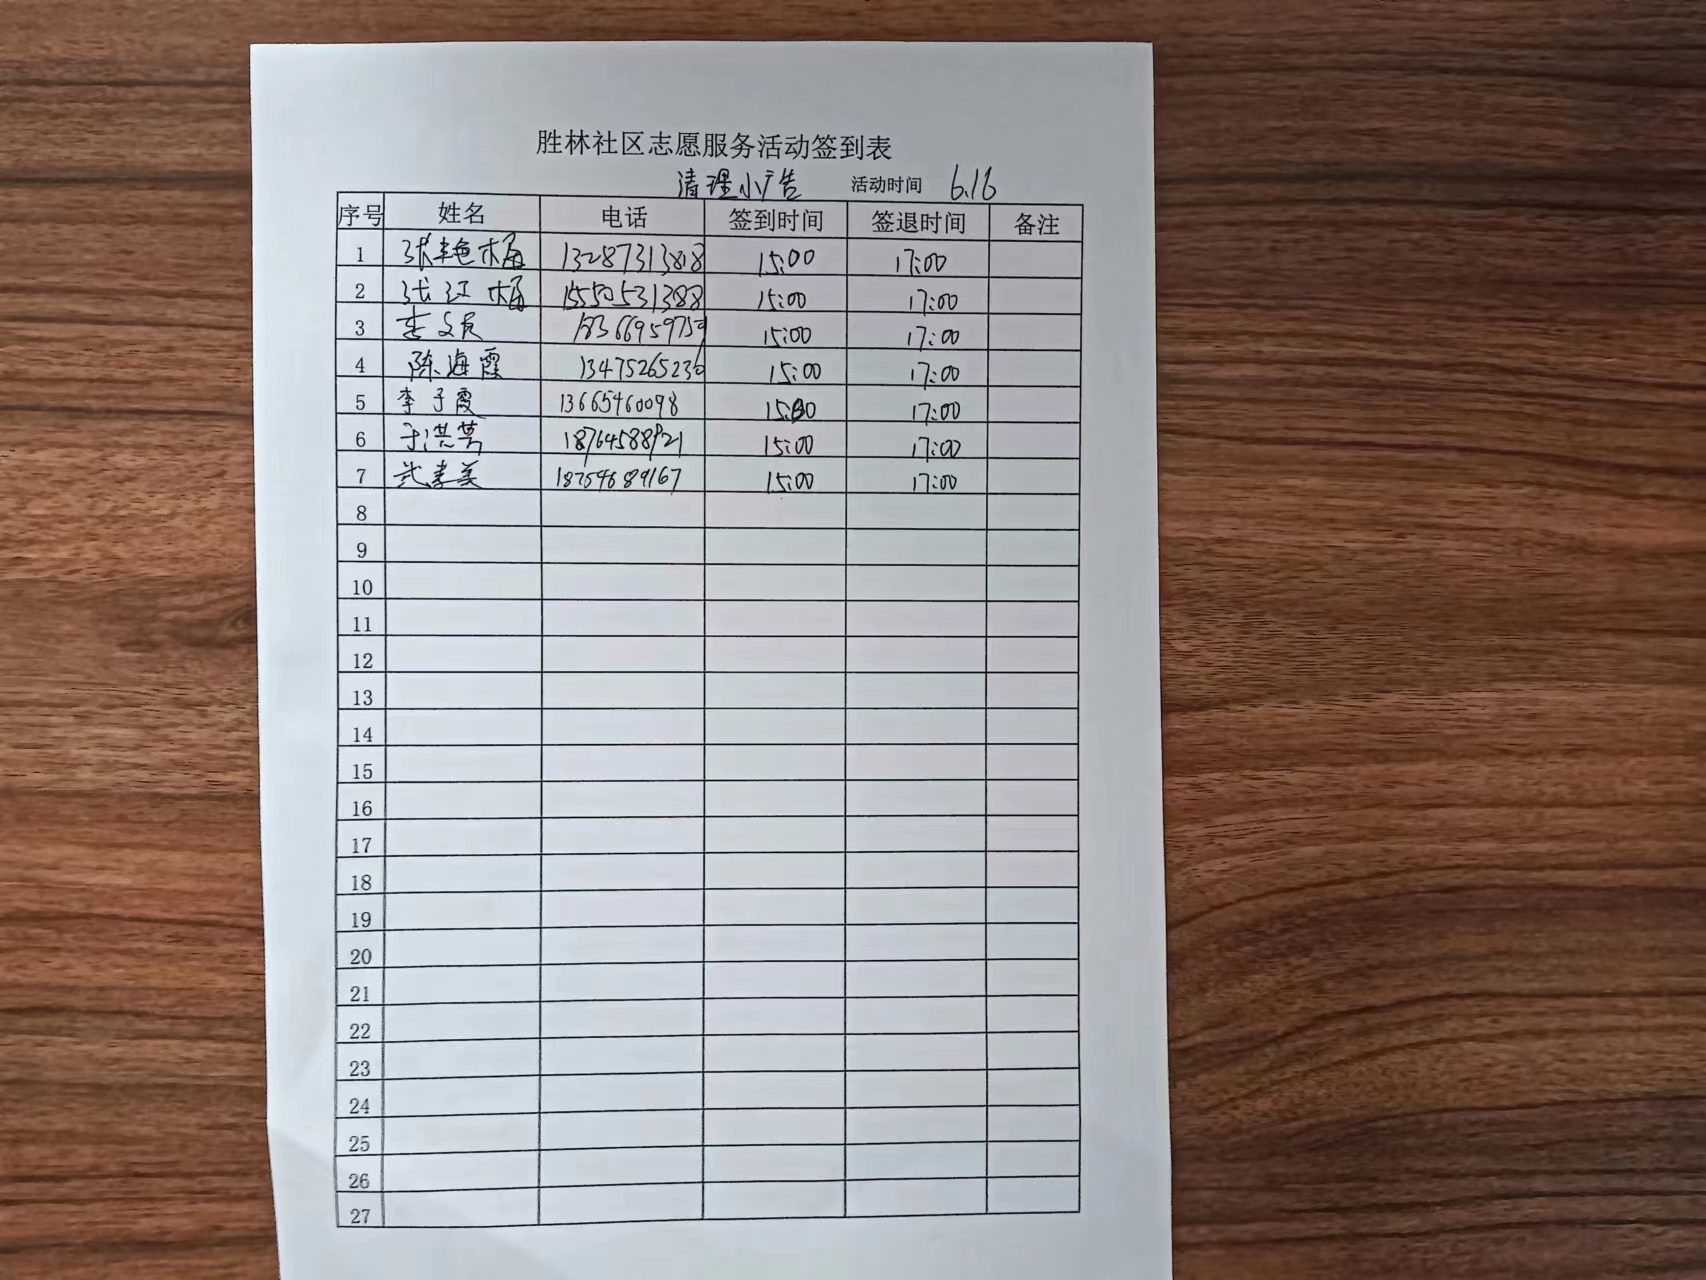 胜林社区志愿服务活动签到表
清理小广告 活动时间 6.16
序号 姓名 电话 签到时间 签退时间 备注
1 张艳梅 13287313818 15:00 17:00
2 张江梅 15550531388 15:00 17:00
3 李文友 18366959759 15:00 17:00
4 陈海霞 13475265236 15:00 17:00
5 李子霞 13665460098 15:00 17:00
6 于洪 18764588921 15:00 17:00
7 武美 18754689167 15:00 17:00
8
9
10
11
12
13
14
15
16
17
18
19
20
21
22
23
24
25
26
27